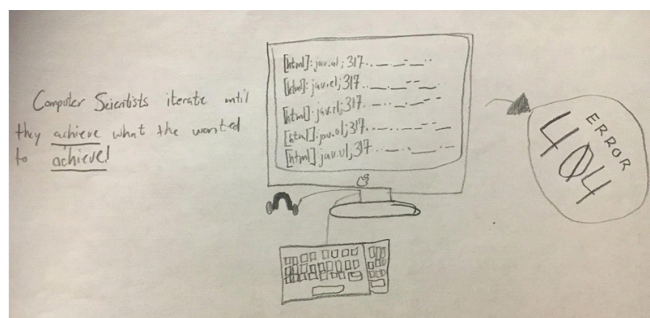 Computer Scientists iterate until
they achieve what the wanted
to achieve!
[html]: jav.al; 317.
[html]: jav.el; 317.
[html]: jav.il; 317.
[html]: jav.ol; 317.
[html] jav.ul; 317.
ERROR
404